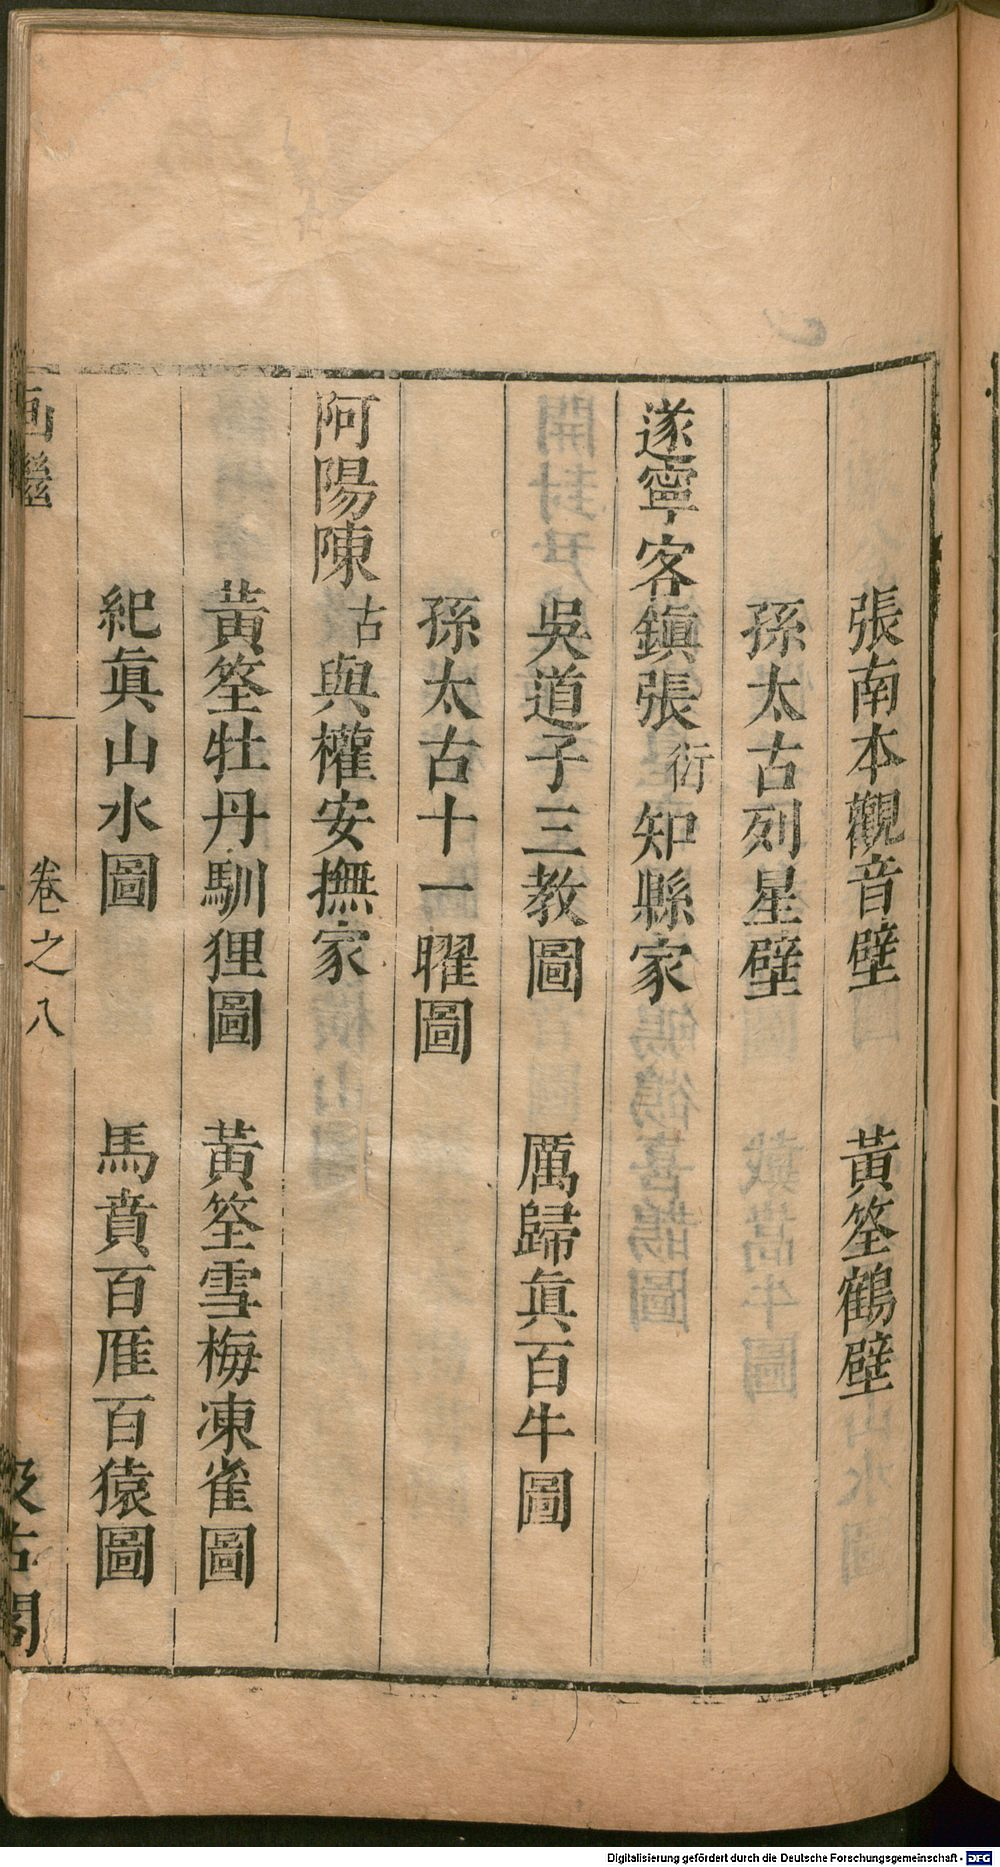 張南本觀音壁　黃筌鶴壁
孫太古列星壁
遂寧客鎮張衍知縣家
吳道子三教圖　厲歸眞百牛圖
孫太古十一曜圖
阿陽陳古與權安撫家
黃筌牡丹馴狸圖　黃筌雪梅凍雀圖
紀眞山水圖　馬賁百雁百猿圖
画繼　卷之八　汲古閣
Digitalisierung gefördert durch die Deutsche Forschungsgemeinschaft - DFG